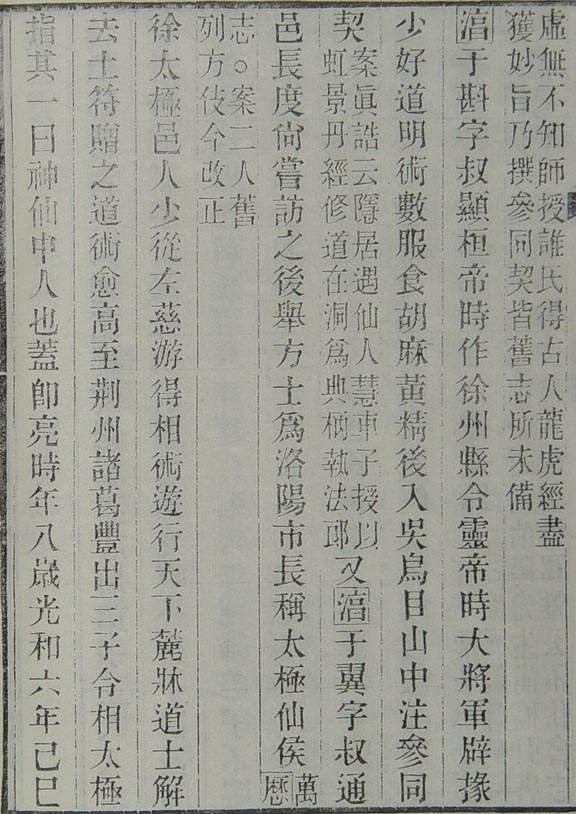 虛無不知師授誰氏得古人龍虎經盡
獲妙旨乃撰參同契皆舊志所未備
淳于斟字叔顯桓帝時作徐州縣令靈帝時大將軍辟掾
少好道明術數服食胡麻黃精後入吳烏目山中注參同
契
案眞誥云隱居遇仙人慧車子授以
虹景丹經修道在洞爲典柄執法郎
又淳于翼字叔通
邑長度尙嘗訪之後舉方士爲洛陽市長稱太極仙侯
萬
歷
志○案二人舊
列方伎今改正
徐太極邑人少從左慈游得相術遊行天下麓牀道士解
去土符贈之道術愈高至荆州諸葛豐出三子令相太極
指其一曰神仙中人也蓋卽亮時年八歲光和六年己巳